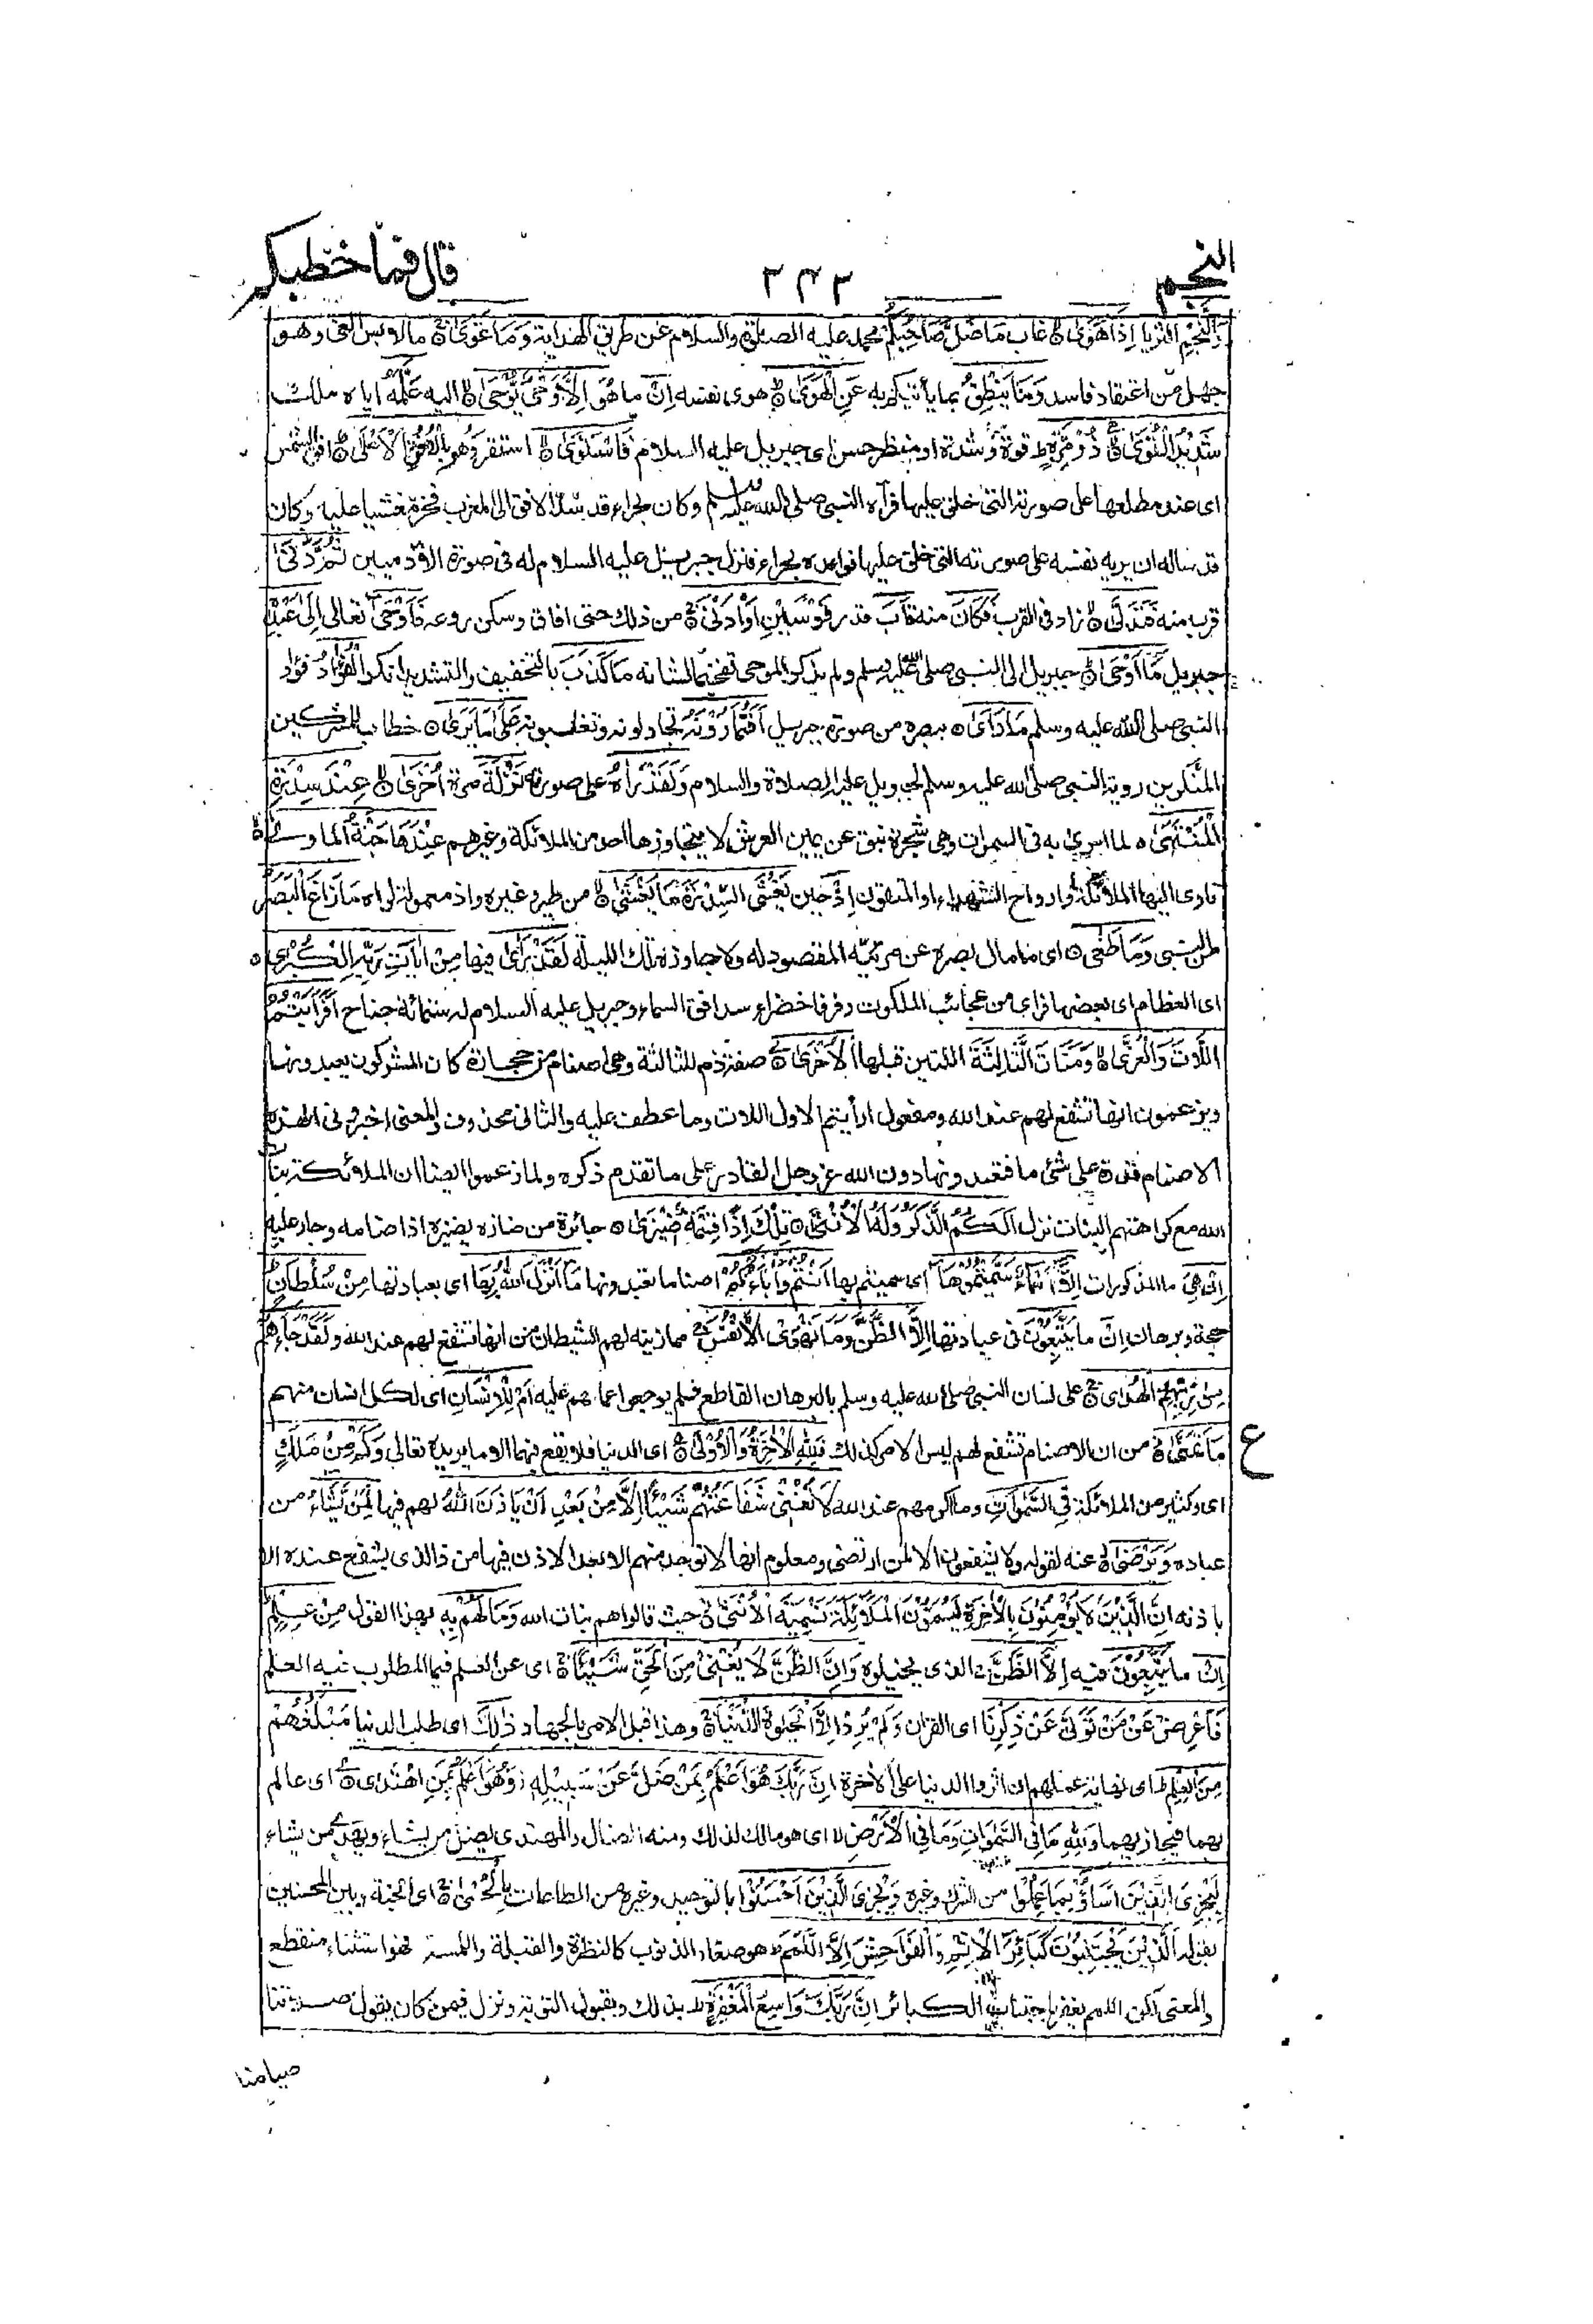 النجم
٣٤٢
قال فما خطبكم
وَالنَّجْمِ الثريا اِذَا هَوٰى غاب مَا ضَلَّ صَاحِبُكُمْ محمد عليه الصلوة والسلام عن طريق الهداية وَمَا غَوٰى ما لابس الغى وهو
جهل من اعتقاد فاسد وَمَا يَنْطِقُ بما يأتيكم به عَنِ الْهَوٰى هوى نفسه اِنْ ما هُوَ اِلَّا وَحْىٌ يُّوْحٰى اليه عَلَّمَهٗ اياه ملك
شَدِيْدُ الْقُوٰى ذُوْ مِرَّةٍ ط قوة وشدة او منظر حسن اى جبريل عليه السلام فَاسْتَوٰى استقر وَهُوَ بِالْاُفُقِ الْاَعْلٰى افق الشمس
اى عند مطلعها على صورته التى خلق عليها فرآه النبى صلى الله عليه وسلم وكان بحراء قد سد الافق الى المغرب فخر مغشيا عليه وكان
قد ساله ان يريه نفسه على صورته التى خلق عليها فواعده بحراء فنزل جبريل عليه السلام له فى صورة الآدميين ثُمَّ دَنٰى
قرب منه فَتَدَلّٰى زاد فى القرب فَكَانَ منه قَابَ قدر قَوْسَيْنِ اَوْ اَدْنٰى من ذلك حتى افاق وسكن روعه فَاَوْحٰى تعالى اِلٰى عَبْدِهٖ
جبريل مَا اَوْحٰى جبريل الى النبى صلى الله عليه وسلم ولم يذكر الموحى تفخيما لشانه مَا كَذَبَ بالتخفيف والتشديد انكر الْفُؤَادُ فؤاد
النبى صلى الله عليه وسلم مَا رَاٰى ببصره من صورة جبريل اَفَتُمَارُوْنَهٗ تجادلونه وتغلبونه عَلٰى مَا يَرٰى خطاب للمشركين
المنكرين روية النبى صلى الله عليه وسلم لجبريل عليه الصلاة والسلام وَلَقَدْ رَاٰهُ على صورته نَزْلَةً مرة اُخْرٰى عِنْدَ سِدْرَةِ
الْمُنْتَهٰى لما اسرى به فى السموات وهى شجرة نبق عن يمين العرش لا يتجاوزها احد من الملائكة وغيرهم عِنْدَهَا جَنَّةُ الْمَاْوٰى
تاوى اليها الملائكة وارواح الشهداء او المتقون اِذْ حين يَغْشَى السِّدْرَةَ مَا يَغْشٰى من طير وغيره واذ معمولة لراه مَا زَاغَ الْبَصَرُ
من النبى وَمَا طَغٰى اى ما مال بصره عن مرئيه المقصود له ولا جاوزه تلك الليلة لَقَدْ رَاٰى فيها مِنْ اٰيٰتِ رَبِّهِ الْكُبْرٰى
اى العظام اى بعضها فراى من عجائب الملكوت رفرفا خضراء سد افق السماء وجبريل عليه السلام له ستمائة جناح اَفَرَاَيْتُمُ
اللّٰتَ وَالْعُزّٰى وَمَنَاتَ الثَّالِثَةَ اللتين قبلها الْاُخْرٰى صفة ذم للثالثة وهى اصنام من حجارة كان المشركون يعبدونها
ويزعمون انها تشفع لهم عند الله ومفعول ارأيتم الاول اللات وما عطف عليه والثانى محذوف والمعنى اخبرونى الهذه
الاصنام قدرة على شئ ما فتعبدونها دون الله عز وجل القادر على ما تقدم ذكره ولما زعموا ايضا ان الملائكة بنات
الله مع كراهتهم البنات نزل اَلَكُمُ الذَّكَرُ وَلَهُ الْاُنْثٰى تِلْكَ اِذًا قِسْمَةٌ ضِيْزٰى جائرة من ضازه يضيزه اذا ضامه وجار عليه
اِنْ هِىَ ما المذكورات اِلَّا اَسْمَاءٌ سَمَّيْتُمُوْهَا اى سميتم بها اَنْتُمْ وَاٰبَاؤُكُمْ اصناما تعبدونها مَا اَنْزَلَ اللّٰهُ بِهَا اى بعبادتها مِنْ سُلْطَانٍ
حجة وبرهان اِنْ ما يَتَّبِعُوْنَ فى عبادتها اِلَّا الظَّنَّ وَمَا تَهْوَى الْاَنْفُسُ مما زينه لهم الشيطان من انها تشفع لهم عند الله وَلَقَدْ جَاءَهُمْ
مِنْ رَّبِّهِمُ الْهُدٰى على لسان النبى صلى الله عليه وسلم بالبرهان القاطع فلم يرجعوا عما هم عليه اَمْ لِلْاِنْسَانِ اى لكل انسان منهم
مَا تَمَنّٰى من ان الاصنام تشفع لهم ليس الامر كذلك فَلِلّٰهِ الْاٰخِرَةُ وَالْاُوْلٰى اى الدنيا فلا يقع فيهما الا ما يريده تعالى وَكَمْ مِّنْ مَّلَكٍ
ع
اى وكثير من الملائكة فِى السَّمٰوٰتِ وما اكرمهم عند الله لَا تُغْنِىْ شَفَاعَتُهُمْ شَيْئًا اِلَّا مِنْ بَعْدِ اَنْ يَّاْذَنَ اللّٰهُ لهم فيها لِمَنْ يَّشَاءُ من
عباده وَيَرْضٰى عنه لقوله ولا يشفعون الا لمن ارتضى ومعلوم انها لا توجد منهم الا بعد الاذن فيها من ذا الذى يشفع عنده الا
باذنه اِنَّ الَّذِيْنَ لَا يُؤْمِنُوْنَ بِالْاٰخِرَةِ لَيُسَمُّوْنَ الْمَلٰٓئِكَةَ تَسْمِيَةَ الْاُنْثٰى حيث قالوا هم بنات الله وَمَا لَهُمْ بِهٖ بهذا القول مِنْ عِلْمٍ
اِنْ ما يَتَّبِعُوْنَ فيه اِلَّا الظَّنَّ الذى تخيلوه وَاِنَّ الظَّنَّ لَا يُغْنِىْ مِنَ الْحَقِّ شَيْئًا اى عن العلم فيما المطلوب فيه العلم
فَاَعْرِضْ عَنْ مَّنْ تَوَلّٰى عَنْ ذِكْرِنَا اى القران وَلَمْ يُرِدْ اِلَّا الْحَيٰوةَ الدُّنْيَا وهذا قبل الامر بالجهاد ذٰلِكَ اى طلب الدنيا مَبْلَغُهُمْ
مِنَ الْعِلْمِ ط اى نهاية علمهم ان اثروا الدنيا على الاخرة اِنَّ رَبَّكَ هُوَ اَعْلَمُ بِمَنْ ضَلَّ عَنْ سَبِيْلِهٖ وَهُوَ اَعْلَمُ بِمَنِ اهْتَدٰى اى عالم
بهما فيجازيهما وَلِلّٰهِ مَا فِى السَّمٰوَاتِ وَمَا فِى الْاَرْضِ لا اى هو مالك لذلك ومنه الضال والمهتدى يضل من يشاء ويهدى من يشاء
لِيَجْزِىَ الَّذِيْنَ اَسَاؤُا بِمَا عَمِلُوْا من الشرك وغيره وَيَجْزِىَ الَّذِيْنَ اَحْسَنُوْا بالتوحيد وغيره من الطاعات بِالْحُسْنٰى اى الجنة وبين المحسنين
بقوله اَلَّذِيْنَ يَجْتَنِبُوْنَ كَبَائِرَ الْاِثْمِ وَالْفَوَاحِشَ اِلَّا اللَّمَمَ هو صغار الذنوب كالنظرة والقبلة واللمسة فهو استثناء منقطع
والمعنى لكن اللمم يغفر باجتناب الكبائر اِنَّ رَبَّكَ وَاسِعُ الْمَغْفِرَةِ بذلك وبقبول التوبة ونزل فيمن كان يقول صلاتنا
صيامنا